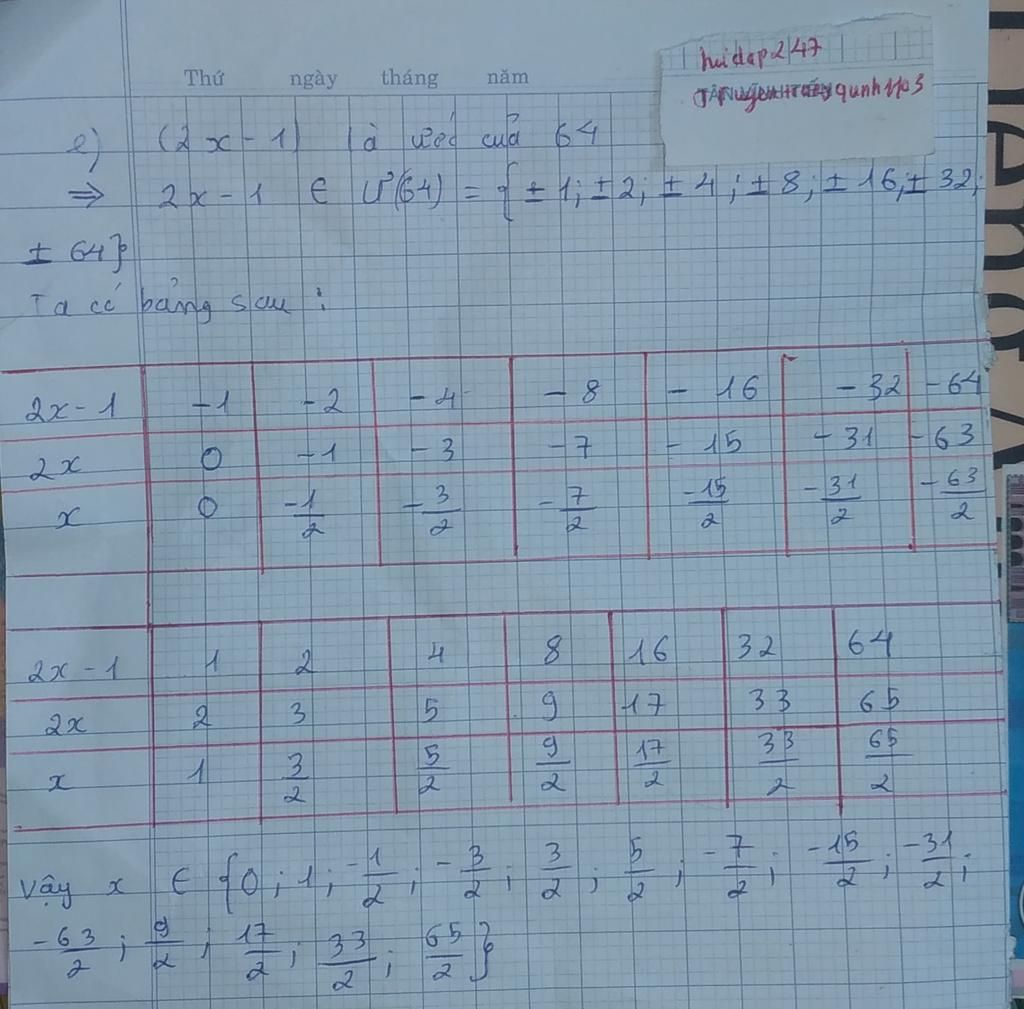 Thứ ngày tháng năm
hoidap247
e) (2x - 1) là ước của 64
⇒ 2x - 1 ∈ Ư(64) = { ± 1; ± 2; ± 4; ± 8; ± 16; ± 32;
± 64}
Ta có bảng sau :
2x - 1 -1 -2 -4 -8 -16 -32 -64
2x 0 -1 -3 -7 -15 -31 -63
x 0 -1/2 -3/2 -7/2 -15/2 -31/2 -63/2
2x - 1 1 2 4 8 16 32 64
2x 2 3 5 9 17 33 65
x 1 3/2 5/2 9/2 17/2 33/2 65/2
Vậy x ∈ {0; 1; -1/2; -3/2; 3/2; 5/2; -7/2; -15/2; -31/2;
-63/2; 9/2; 17/2; 33/2; 65/2}